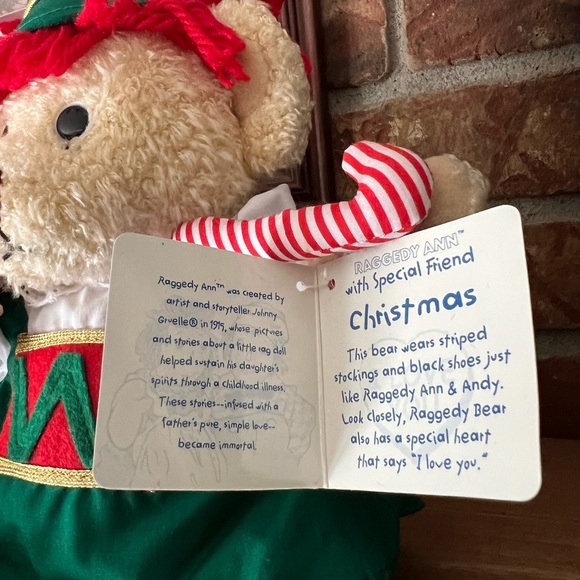 Raggedy Ann™ was created by
artist and storyteller Johnny
Gruelle® in 1915, whose pictures
and stories about a little rag doll
helped sustain his daughter's
spirits through a childhood illness.
These stories--infused with a
father's pure, simple love--
became immortal.
RAGGEDY ANN™
with Special Friend
Christmas
This bear wears striped
stockings and black shoes just
like Raggedy Ann & Andy.
Look closely, Raggedy Bear
also has a special heart
that says "I love you."